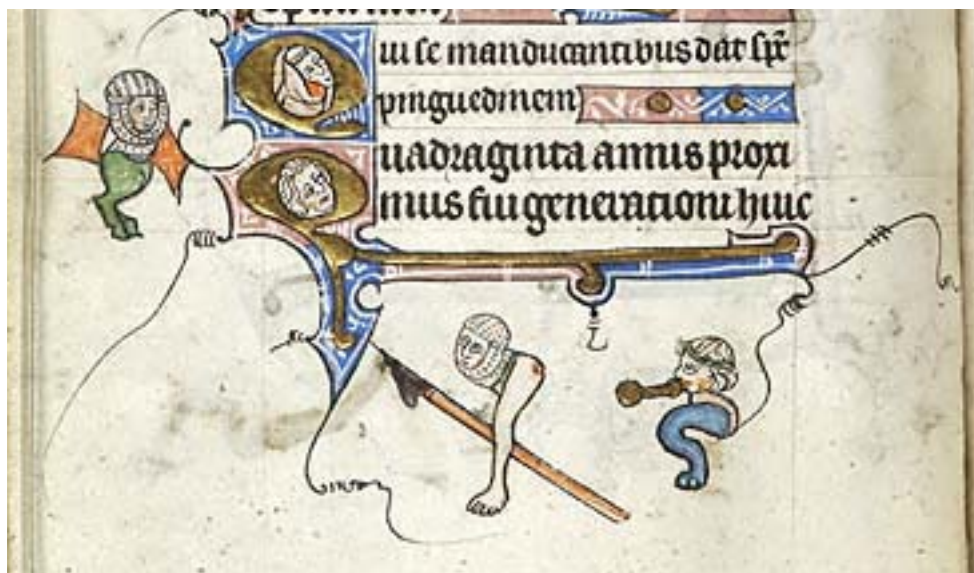 Qui se manducantibus dat
pinguedinem
Quadraginta annis proxi
mus fui generationi huic